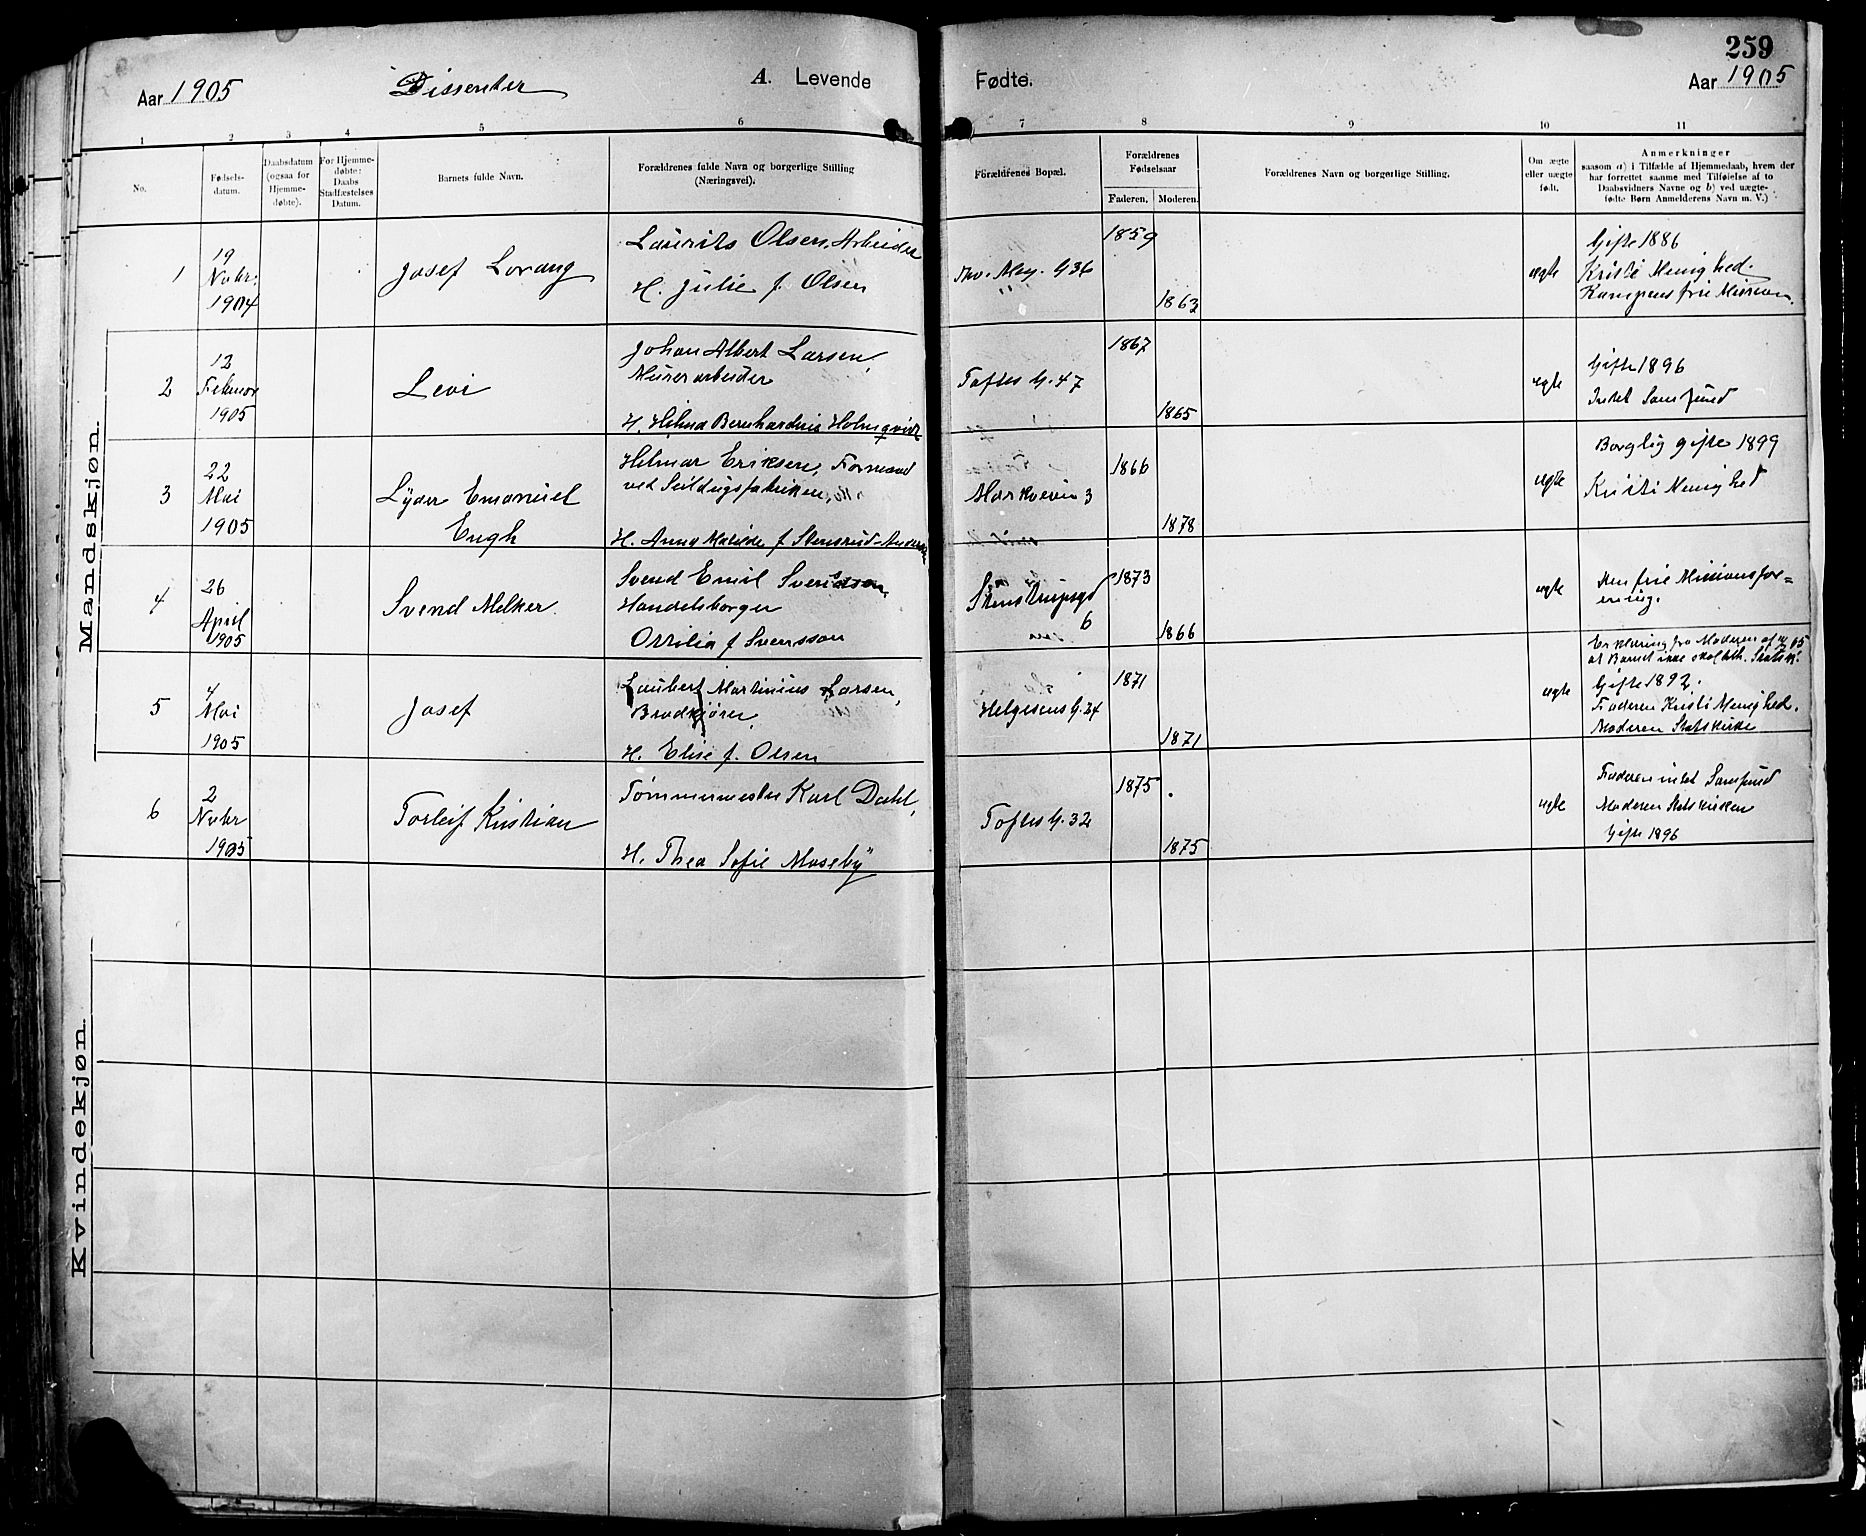 259
Aar 1905
Dissenter
A. Levende
Fødte.
Aar 1905
1
2
3
4
5
6
7
8
9
10
11
No.
Fødsels-
datum.
Daabsdatum
(ogsaa for
Hjemme-
døbte).
For Hjemme-
døbte:
Daabs
Stadfæstelses
Datum.
Barnets fulde Navn.
Forældrenes fulde Navn og borgerlige Stilling
(Næringsvei).
Forældrenes Bopæl.
Forældrenes
Fødselsaar
Faderen.
Moderen.
Forældrenes Navn og borgerlige Stilling.
Om ægte
eller uægte
født.
Anmerkninger
saasom a) i Tilfælde af Hjemmedaab, hvem der
har forrettet samme med Tilføielse af to
Daabsvidners Navne og b) ved uægte-
fødte Børn Anmelderens Navn m. V.)
Mandskjøn.
1
19
Novbr.
1904
Josef Lorang
Laurits Olsen, Arbeider
H. Julie f. Olsen
Thv. Mey. G 36
1859
1863
ægte
Gifte 1886
Kristi Menighed.
Kampens frie Mission.
2
12
Februar
1905
Levi
Johan Albert Larsen,
Murerarbeider
H. Hilma Bernhardine Holmqvist
Toftes G. 47
1867
1865
ægte
Gifte 1896
Intet Samfund
3
22
Mai
1905
Lyder Emanuel
Engh
Hilmar Eriksen, Formand
ved Seildugsfabriken
H. Anna Matilde f. Stensrud-Anders
Markveien 3
1866
1878
ægte
Borglig gifte 1899
Kristi Menighed
4
26
April
1905
Svend Melker
Svend Emil Svendsen,
Handelsborger
Ottilia f Svensson
Stenstrupsgd
6
1873
1866
ægte
Den frie Missionsfor=
ening.
5
4
Mai
1905
Josef
Laubert Martinius Larsen,
Brødkjører,
H. Elise f. Olsen
Helgesens G. 24
1871
1871
ægte
Erklæring fra Moderen af
at Barnet ikke skal tilh. Statsk.
Gifte 1892.
Faderen Kristi Menighed.
Moderen Statskirke
6
2
Novbr
1905
Torleif Kristian
Tømmermester Karl Dahl,
H. Thea Sofie Moseby
Toftes G. 32
1875
1875
ægte
Faderen intet Samfund
Moderen Statskirken
Gifte 1896
Kvindekjøn.